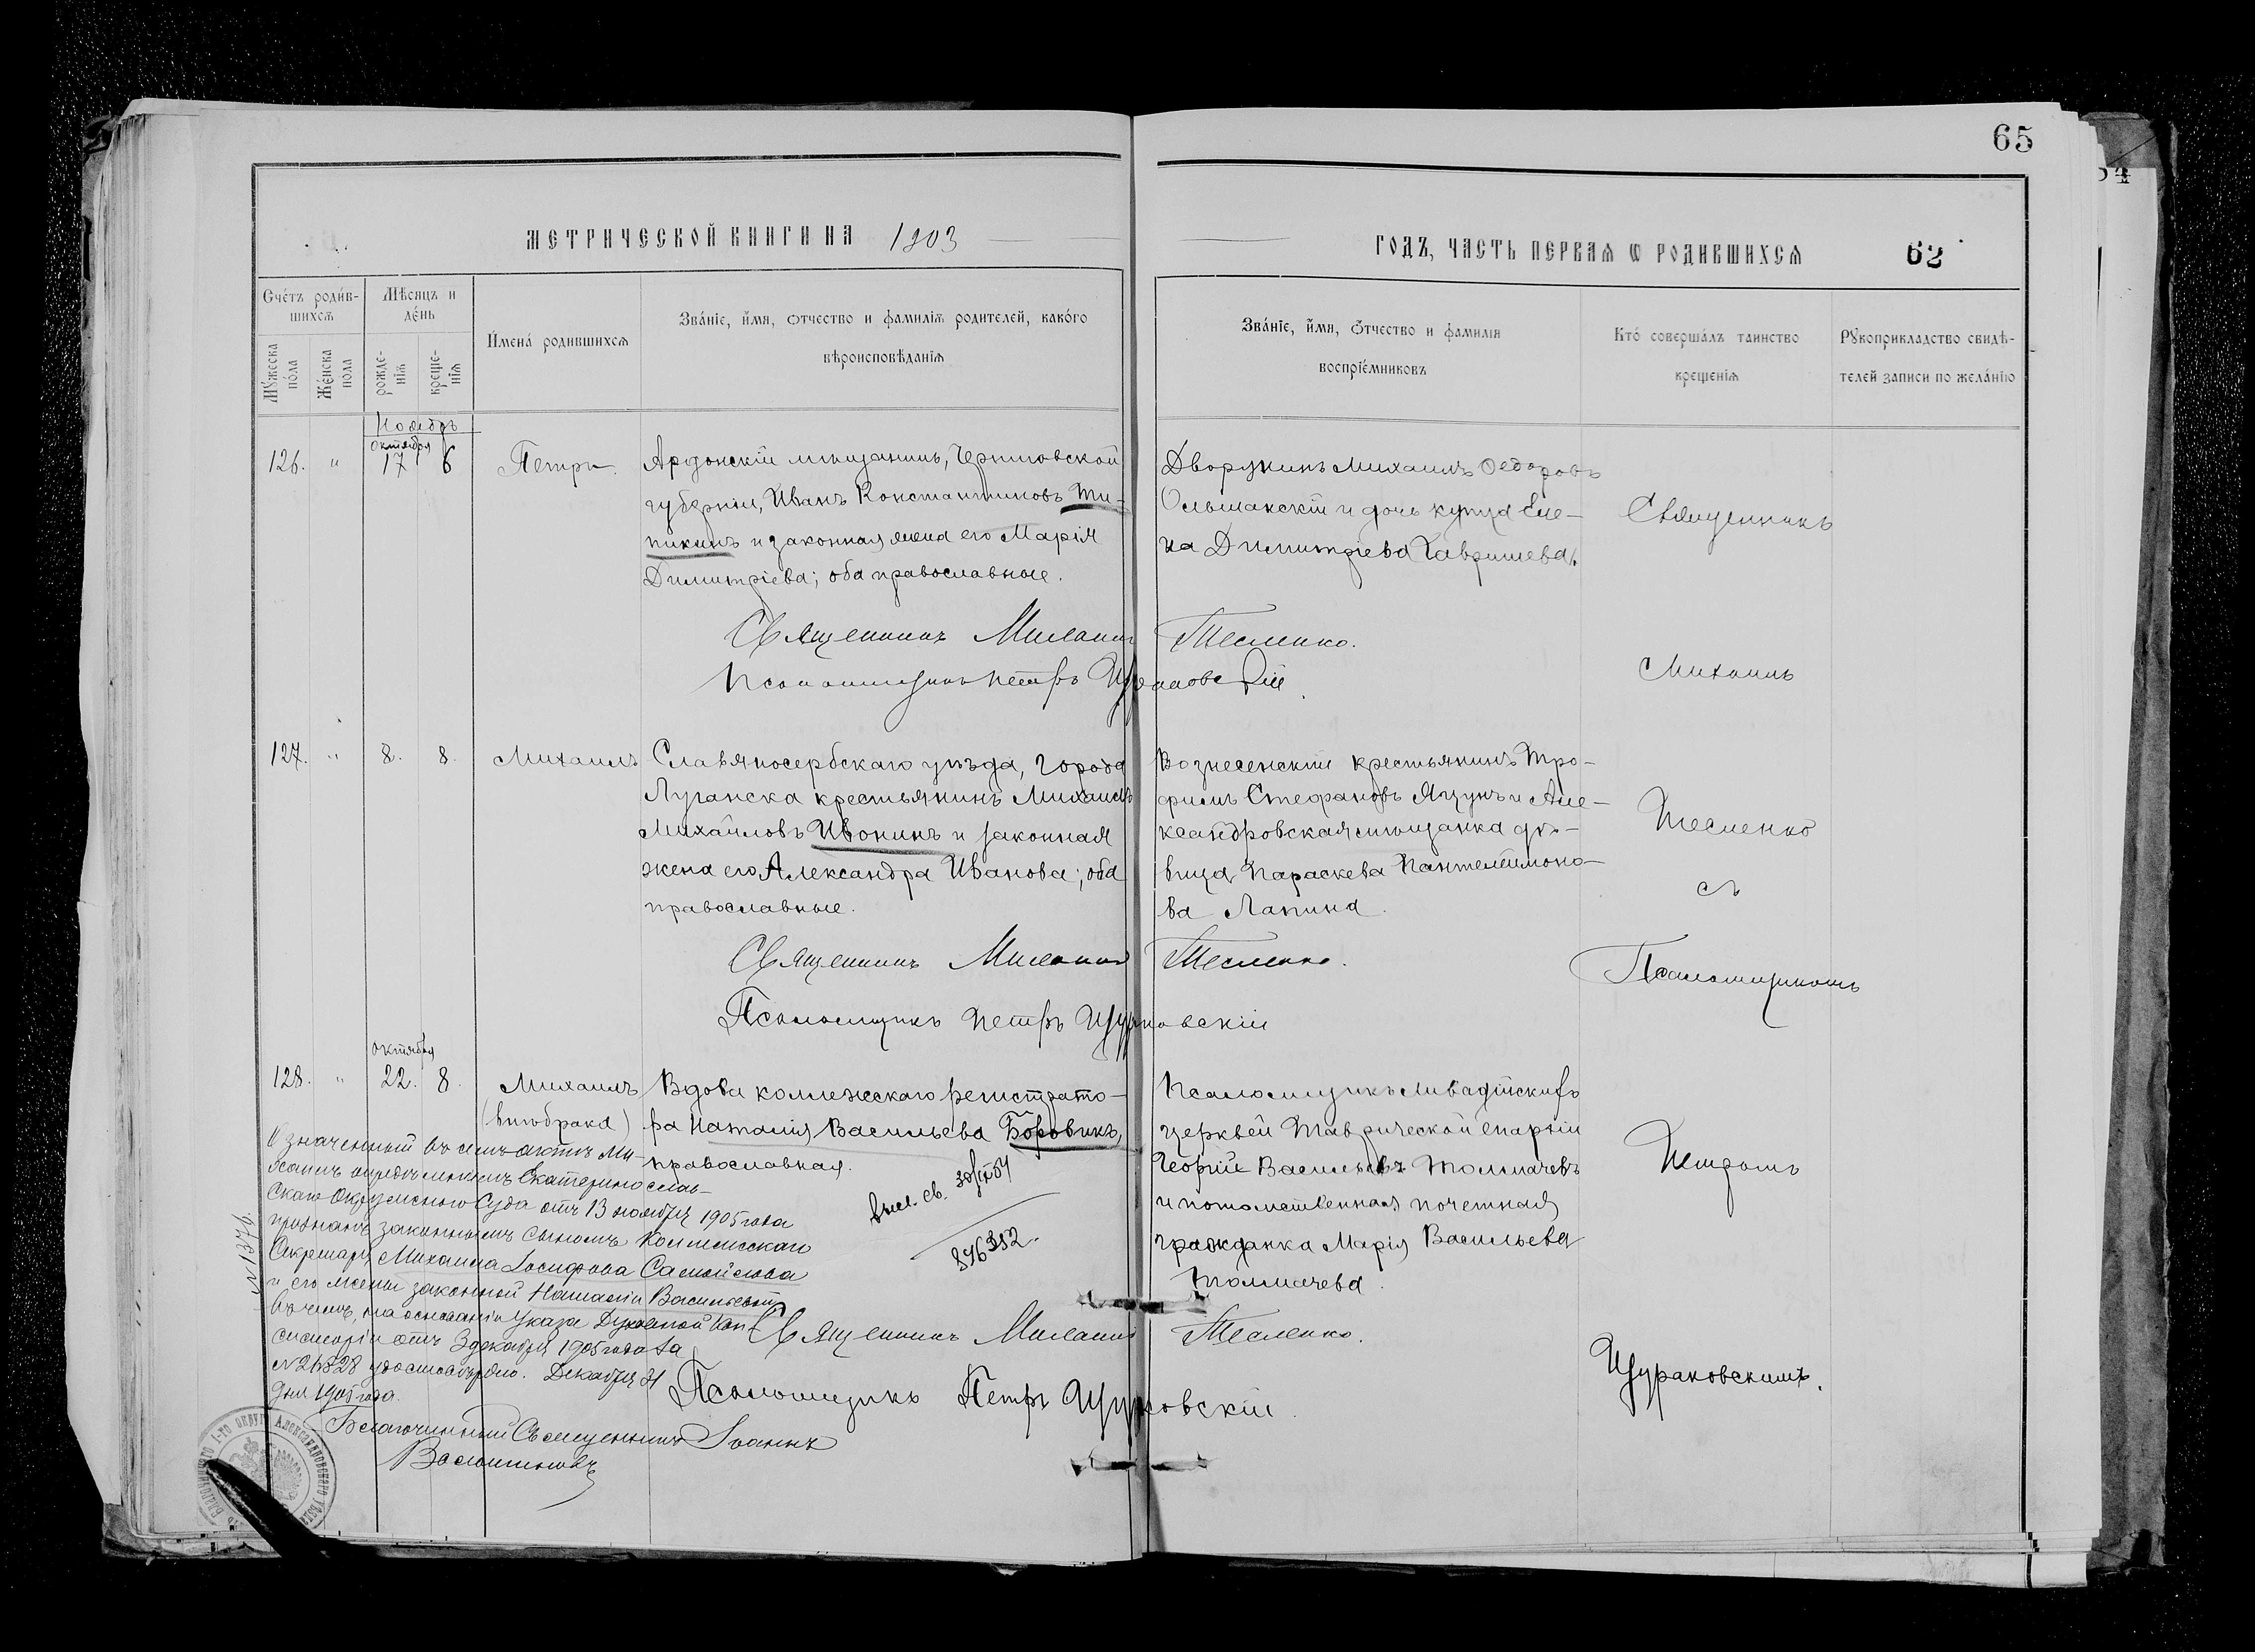 65
МЕТРИЧЕСКОЙ КНИГИ НА 1903
ГОДЪ, ЧАСТЬ ПЕРВАЯ Ѡ РОДИВШИХСЯ
62
Счетъ родив-
шихся
Мѣсяцъ и
день
Мужеска
пола
Женска
пола
рожде-
нія
креще-
нія
Имена родившихся
Званіе, имя, отчество и фамилія родителей, какого
вѣроисповѣданія
Званіе, имя, отчество и фамилія
воспріемниковъ
Кто совершалъ таинство
крещенія
Рукоприкладство свидѣ-
телей записи по желанію
Ноябрь
октября
126. " 17 6 Петръ.
Ардонскій мѣщанинъ, Черниговской
губерніи, Иванъ Константиновъ Ти-
пикинъ и законная жена его Марія
Димитріева; оба православные.
Дворянинъ Михаилъ Федоровъ
Ольшанскій и дочь купца Еле-
на Димитріева Гавришева.
Священникъ Михаилъ Тесленко.
Псаломщикъ Петръ Щураковскій
127. " 8. 8. Михаилъ
Славяносербскаго уѣзда, города
Луганска крестьянинъ Михаилъ
Михайловъ Ивонинъ и законная
жена его Александра Иванова; оба
православные.
Вознесенскій крестьянинъ Тро-
фимъ Стефановъ Яцунъ и Але-
ксандровская мѣщанка дѣ-
вица Параскева Пантелеимоно-
ва Лапина.
Священникъ Михаилъ Тесленко.
Псаломщикъ Петръ Щураковскій
октября
128. " 22. 8. Михаилъ
(внѣбрака)
Вдова коллежскаго регистрато-
ра Наталія Васильева Боровикъ,
православная.
Псаломщикъ Ливадійскихъ
церквей Таврической епархіи
Георгій Васильевъ Толмачевъ
и потомственная почетная
гражданка Марія Васильева
Толмачева.
Священникъ Михаилъ Тесленко.
Псаломщикъ Петръ Щураковскій.
Означенный въ семъ актѣ Ми-
хаилъ опредѣленіемъ Екатеринослав-
скаго Окружного Суда отъ 13 ноября 1905 года
признанъ законнымъ сыномъ Коллежскаго
Секретаря Михаила Іосифова Самойлова
и его жены законной Наталіи Васильевой,
въ чемъ, на основаніи Указа Духовной Кон-
систоріи отъ 3 декабря 1905 года за
№ 24828 удостовѣрено. Декабря 31
дня 1905 года.
Благочинный Священникъ Іоаннъ
№ 1376.
выд. св.
896352.
Священникъ
Михаилъ
Тесленко
съ
Псаломщикомъ
Петромъ
Щураковскимъ.
1-го ОКРУГА АЛЕКСАНДРОВСКАГО УѢЗДА